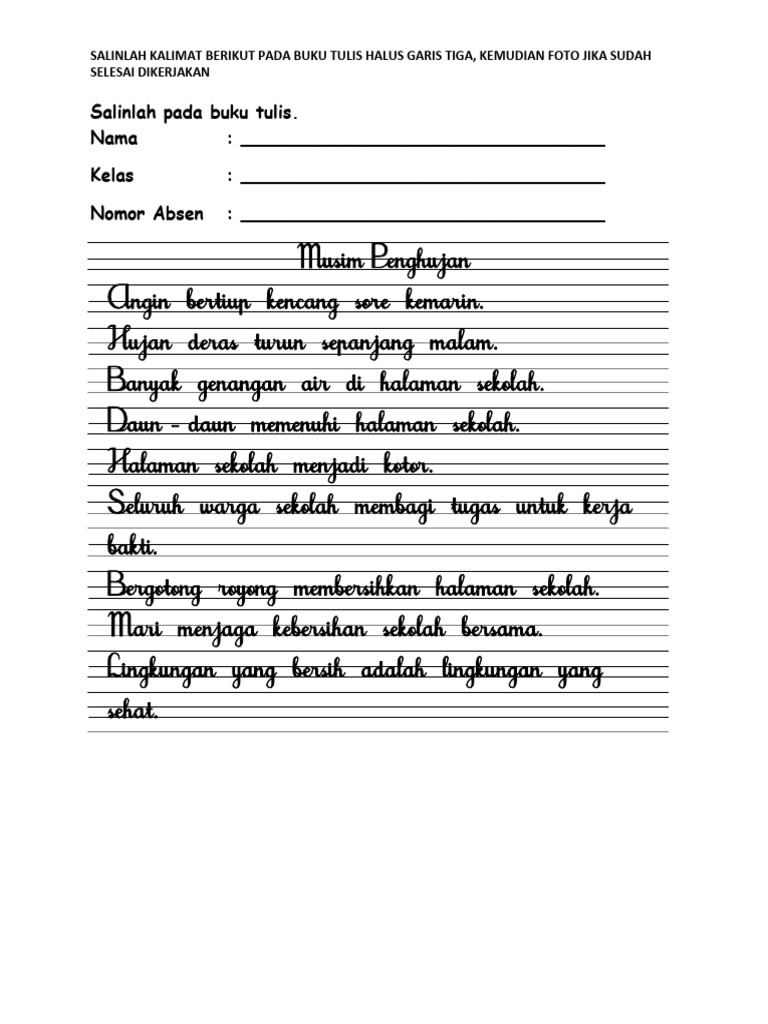 SALINLAH KALIMAT BERIKUT PADA BUKU TULIS HALUS GARIS TIGA, KEMUDIAN FOTO JIKA SUDAH
SELESAI DIKERJAKAN
Salinlah pada buku tulis.
Nama : ________________________________
Kelas : ________________________________
Nomor Absen : ________________________________
Musim Penghujan
Angin bertiup kencang sore kemarin.
Hujan deras turun sepanjang malam.
Banyak genangan air di halaman sekolah.
Daun - daun memenuhi halaman sekolah.
Halaman sekolah menjadi kotor.
Seluruh warga sekolah membagi tugas untuk kerja
bakti.
Bergotong royong membersihkan halaman sekolah.
Mari menjaga kebersihan sekolah bersama.
Lingkungan yang bersih adalah lingkungan yang
sehat.